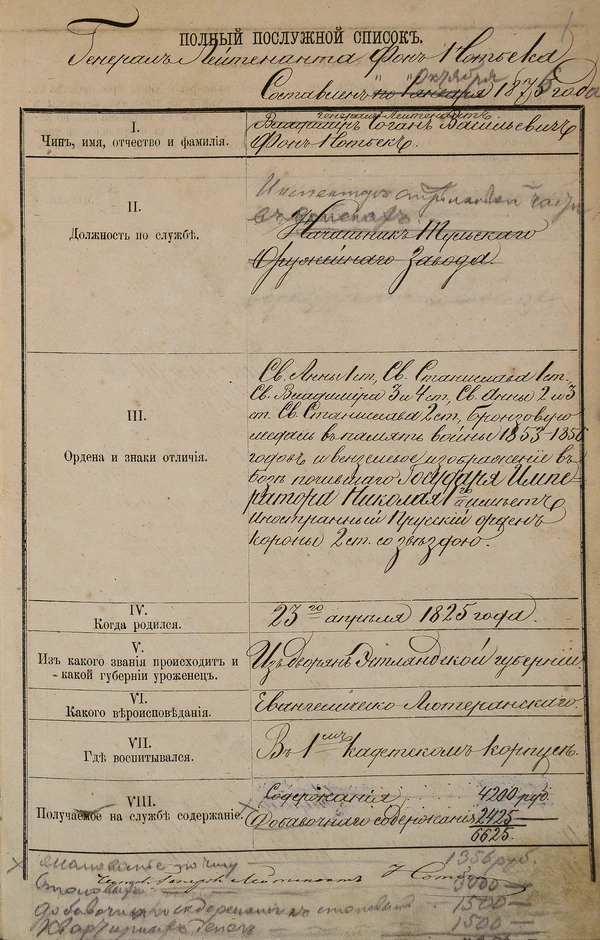 1
ПОЛНЫЙ ПОСЛУЖНОЙ СПИСОКЪ.
Генералъ Лейтенанта Фонъ Нотбека
Составленъ по 1 января Октября 1876 года
I.
Чинъ, имя, отчество и фамилія.
генералъ Лейтенантъ
Владиміръ Іоганъ Васильевичъ
Фонъ-Нотбекъ.
II.
Должность по службѣ.
Инспекторъ стрѣлковой части
въ войскахъ
Начальникъ Тульскаго
Оружейнаго Завода.
III.
Ордена и знаки отличія.
Св. Анны 1 ст, Св. Станислава 1 ст.
Св. Владиміра 3 и 4 ст, Св. Анны 2 и 3
ст. Св. Станислава 2 ст, бронзовую
медаль въ память войны 1853-1856
годовъ и вензелевое изображеніе въ
Бозѣ почившаго Государя Импе-
ратора Николая 1го имѣетъ
иностранный Прусскій орденъ
короны 2 ст. со звѣздою.
IV.
Когда родился.
23го апрѣля 1825 года.
V.
Изъ какого званія происходитъ и
какой губерніи уроженецъ.
Изъ дворянъ Эстляндской губерніи
VI.
Какого вѣроисповѣданія.
Евангелическо-Лютеранскаго.
VII.
Гдѣ воспитывался.
Въ 1мъ кадетскомъ корпусѣ.
VIII.
Получаемое на службѣ содержаніе.
Содержанія 4200 руб.
Добавочнаго содержанія 2425
6625.
жалованье по чину 1356 руб.
Столовыхъ 3000
Генералъ Лейтенантъ Нотбекъ
добавочнаго содержанія къ столовымъ 1500
Квартирныхъ 1500